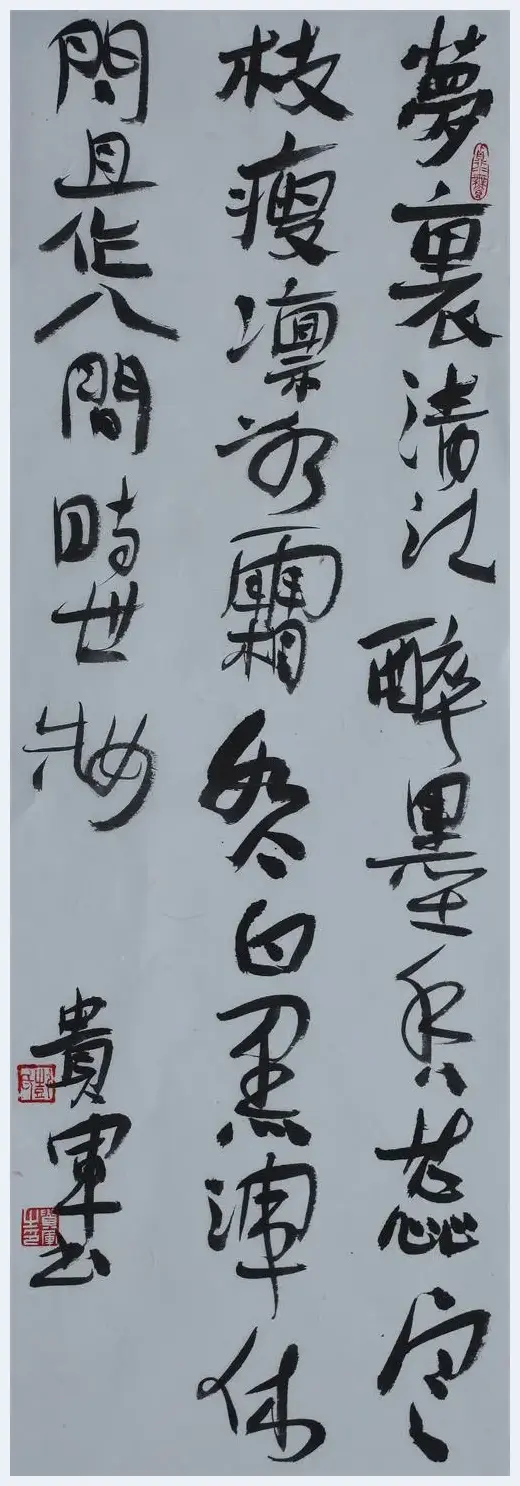 夢裏清江醉墨香蕊寒
枝瘦凜冰霜如今白黑渾休
問且作人間時世妝
貴軍書